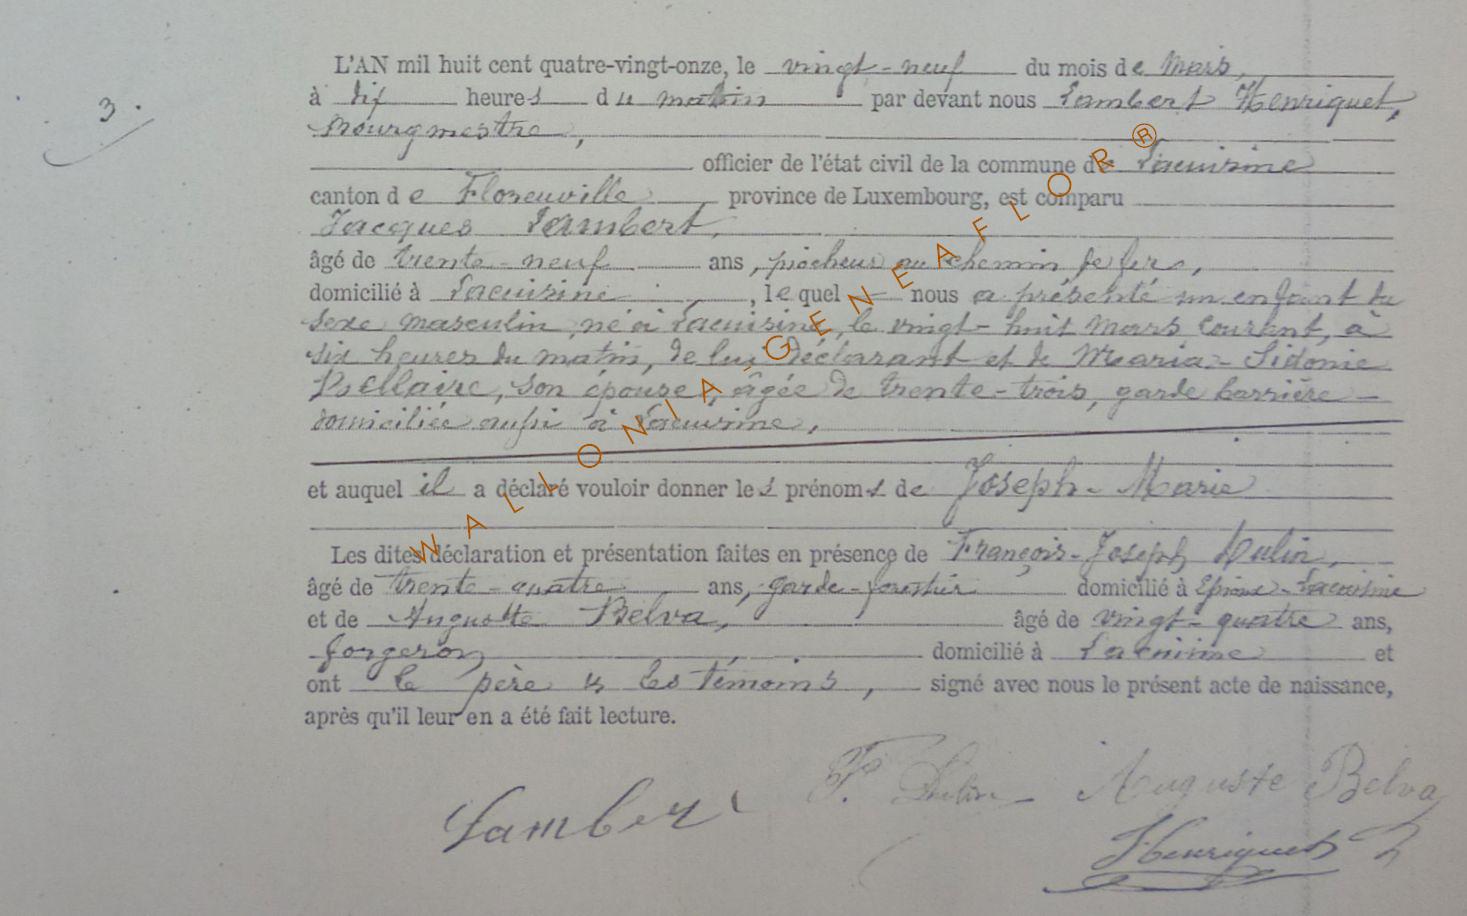 3.
L'AN mil huit cent quatre-vingt-onze, le vingt-neuf du mois de Mars,
à dix heures du matin par devant nous Lambert Henriquet,
Bourgmestre,
officier de l'état civil de la commune de Lacuisine
canton de Florenville province de Luxembourg, est comparu
Jacques Lambert,
âgé de trente-neuf ans, piocheur au chemin de fer,
domicilié à Lacuisine, lequel nous a présenté un enfant du
sexe masculin, né à Lacuisine, le vingt-huit Mars courant, à
six heures du matin, de lui déclarant et de Maria-Sidonie
Bellaire, son épouse, âgée de trente-trois, garde barrière -
domiciliée aussi à Lacuisine,
et auquel il a déclaré vouloir donner les prénoms de Joseph-Marie
Les dites déclaration et présentation faites en présence de François-Joseph Dulin,
âgé de trente-quatre ans, garde-forestier domicilié à Epioux-Lacuisine
et de Auguste Belva, âgé de vingt-quatre ans,
forgeron domicilié à Lacuisine et
ont le père & les témoins, signé avec nous le présent acte de naissance,
après qu'il leur en a été fait lecture.
Lambert F. Dulin Auguste Belva
Henriquet
WALLONIA-GENEAFLOR®